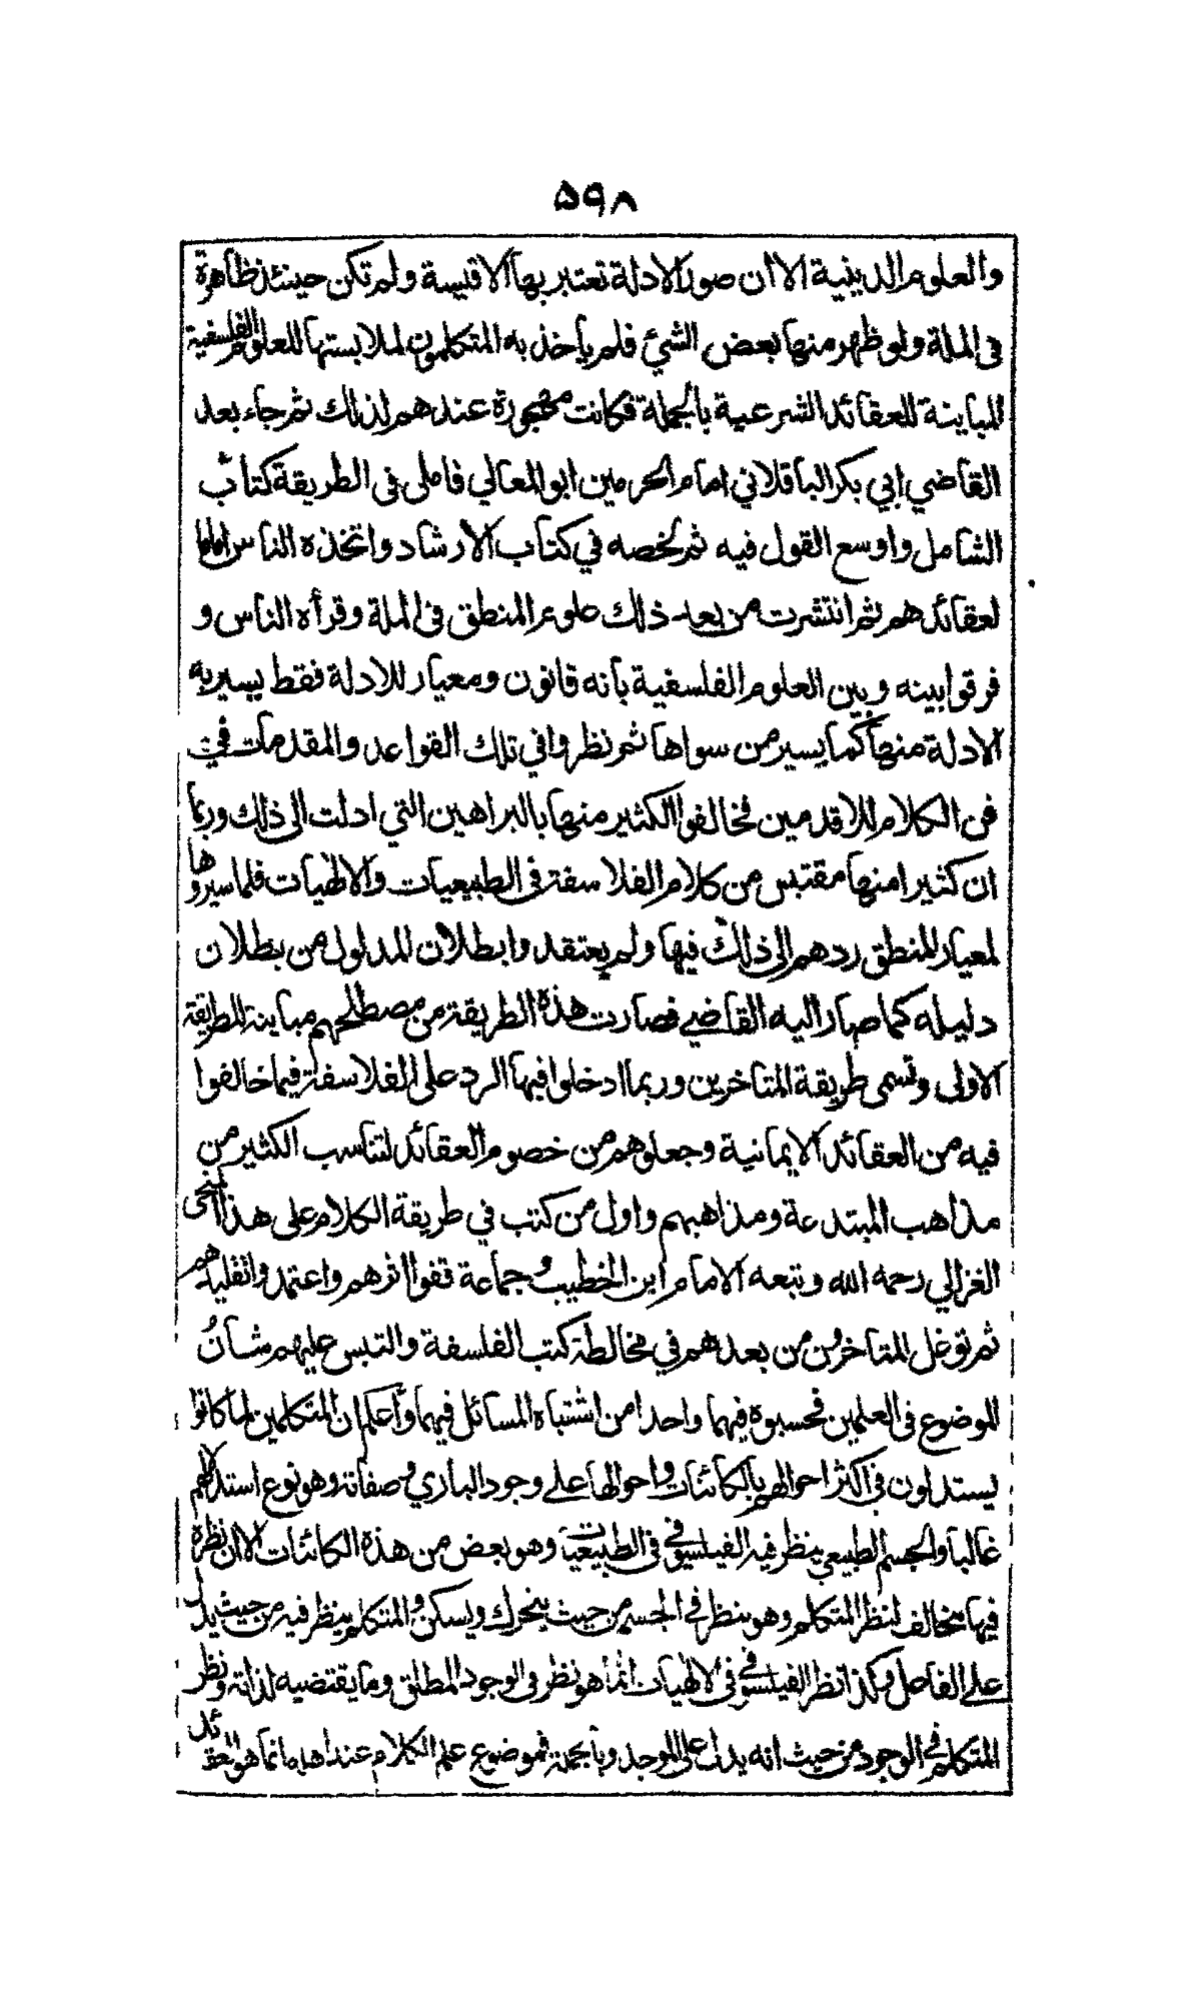 ۵۹۸
والعلوم الدينية الا ان صور الادلة تعتبر بها الاقيسة ولم تكن حينئذ ظاهرة
فى الملة ولو ظهر منها بعض الشئ فلم يأخذ به المتكلمون لملابستها للعلوم الفلسفية
المباينة للعقائد الشرعية بالجملة فكانت مهجورة عندهم لذلك ثم جاء بعد
القاضي ابي بكر الباقلاني امام الحرمين ابو المعالي فاملى فى الطريقة كتاب
الشامل واوسع القول فيه ثم لخصه في كتاب الارشاد واتخذه الناس اماما
لعقائدهم ثم انتشرت من بعد ذلك علوم المنطق فى الملة وقرأه الناس و
فرقوا بينه وبين العلوم الفلسفية بأنه قانون ومعيار للادلة فقط يسير به
الادلة منها كما يسير من سواها ثم نظروا في تلك القواعد والمقدمات في
فى الكلام للاقدمين فخالفوا الكثير منها بالبراهين التي ادلت الى ذلك وربما
ان كثيرا منها مقتبس من كلام الفلاسفة فى الطبيعيات والالٰهيات فلما سيروها
لمعيار المنطق ردهم الى ذلك فيها ولم يعتقدوا بطلان المدلول من بطلان
دليله كما صار اليه القاضي فصارت هذه الطريقة من مصطلحهم مباينة للطريقة
الاولى وتسمى طريقة المتاخرين وربما ادخلوا فيها الرد على الفلاسفة فيما خالفوا
فيه من العقائد الايمانية وجعلوهم من خصوم العقائد لتناسب الكثير من
مذاهب المبتدعة ومذاهبهم واول من كتب في طريقة الكلام على هذا المنحى
الغزالي رحمه الله وتبعه الامام ابن الخطيب وجماعة قفوا اثرهم واعتمدوا تقليدهم
ثم توغل المتاخرون من بعدهم في مخالطة كتب الفلسفة والتبس عليهم شان
الموضوع فى العلمين فحسبوه فيهما واحدا من اشتباه المسائل فيهما واعلم ان المتكلمين لما كانوا
يستدلون فى اكثر احوالهم بالكائنات واحوالها على وجود الباري وصفاته وهو نوع استدلالهم
غالبا والجسم الطبيعي ينظر فيه الفيلسوف فى الطبيعيات وهو بعض من هذه الكائنات الا ان نظره
فيها مخالف لنظر المتكلم وهو ينظر فى الجسم من حيث يتحرك ويسكن والمتكلم ينظر فيه من حيث يدل
على الفاعل وكذا نظر الفيلسوف فى الالٰهيات انما هو نظر فى الوجود المطلق وما يقتضيه لذاته ونظر
المتكلم فى الوجود من حيث انه يدل على الموجد وبالجملة فموضوع علم الكلام عند اهله انما هو العقائد